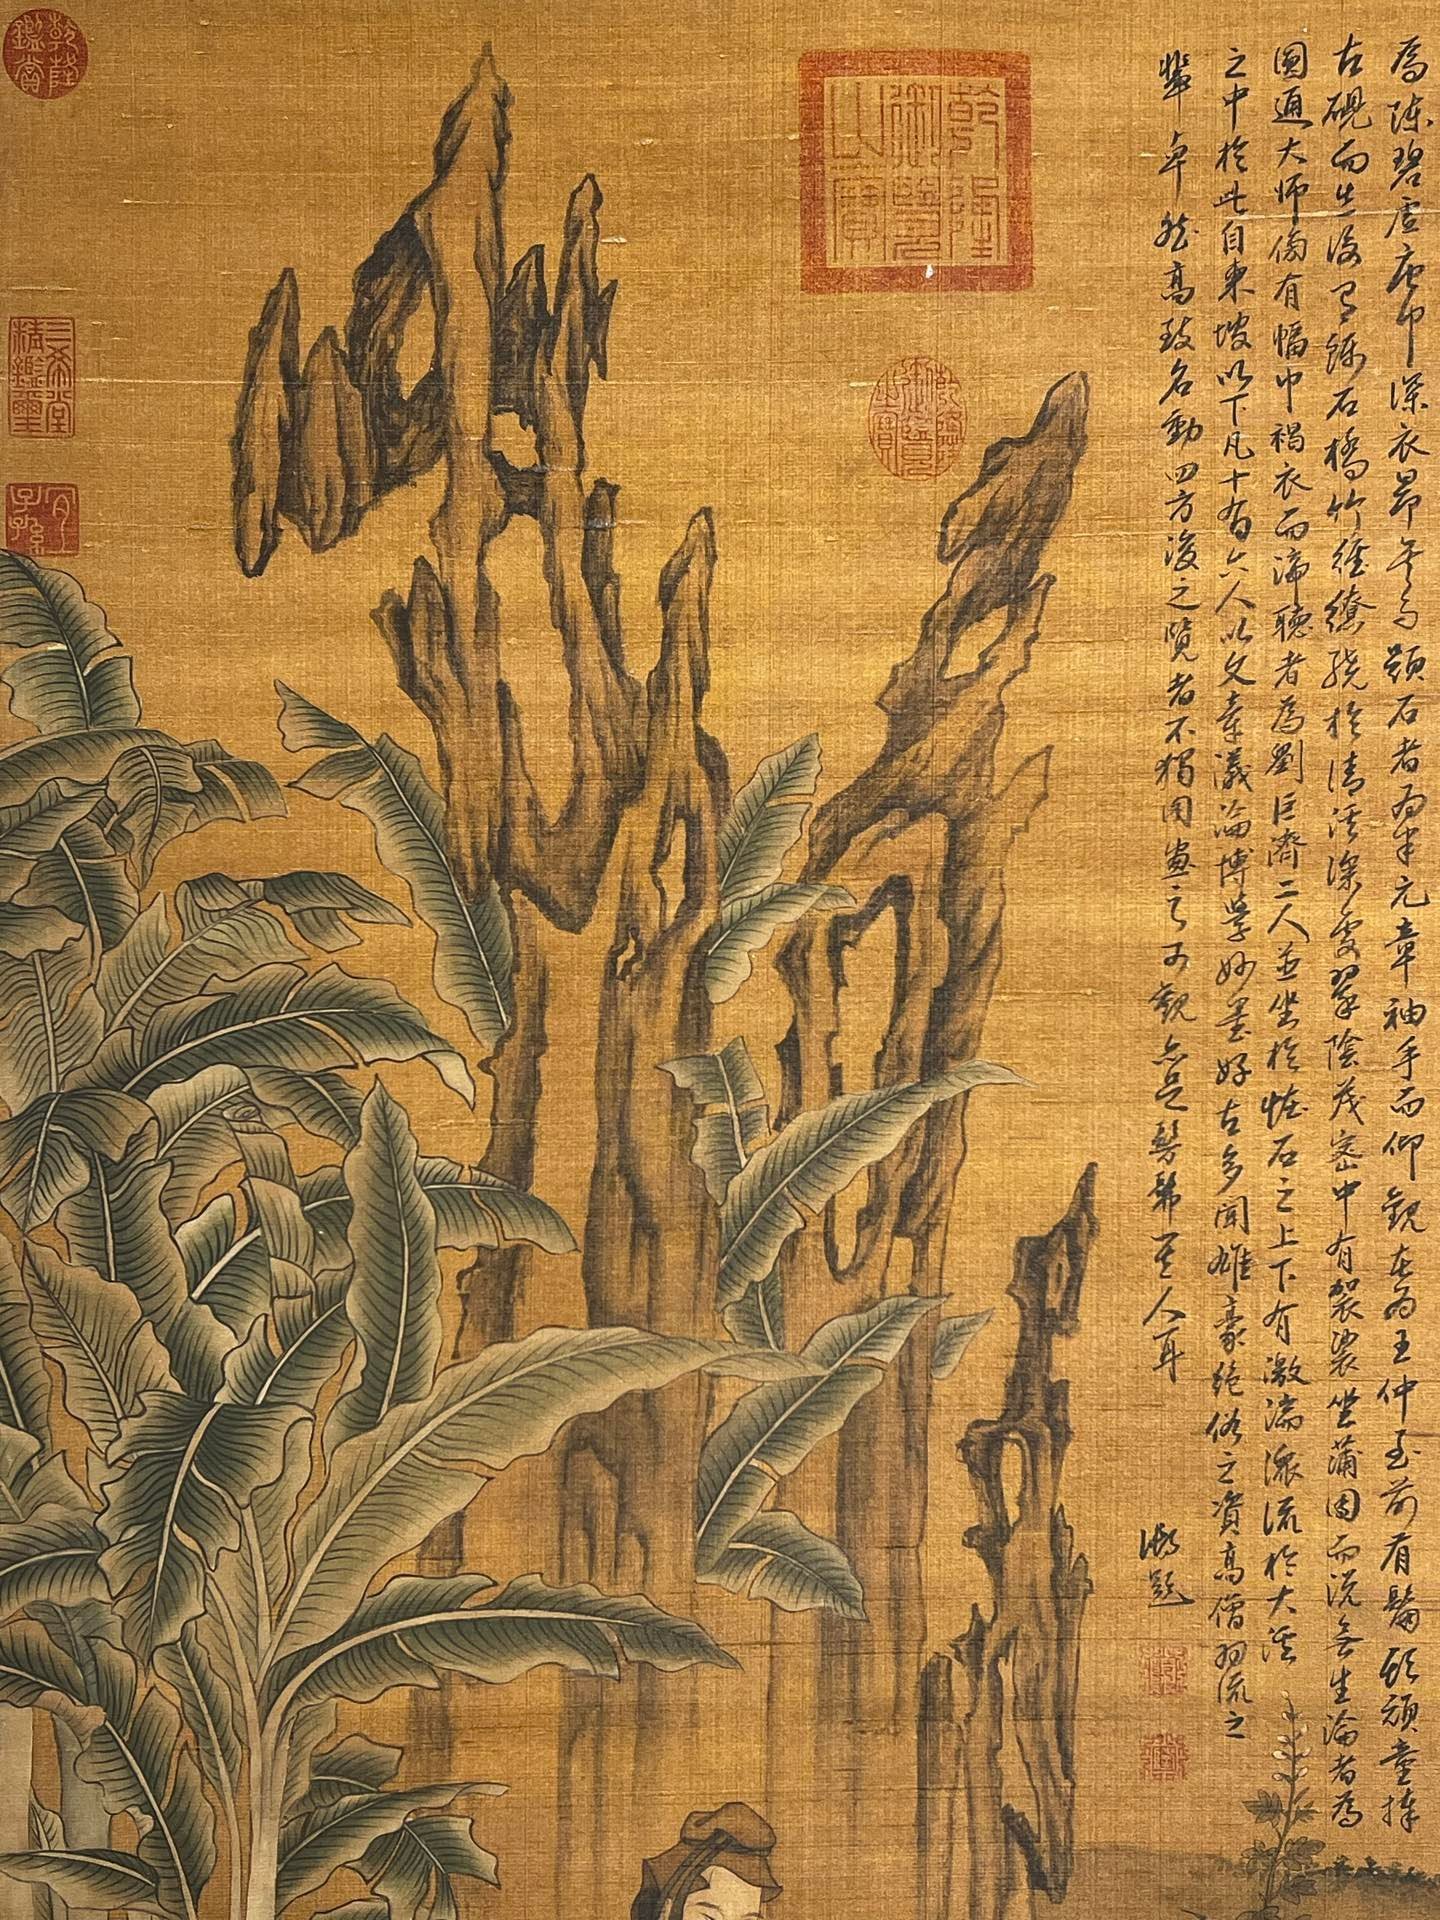 為陳碧虛唐巾深衣昂首而題石者為米元章袖手而仰觀者為王仲至前有鬅頭頑童捧
古硯而立後有錦石橋竹徑繚繞於清溪深處翠陰茂密中有袈裟坐蒲團而說無生論者為
圓通大師傍有幅巾褐衣而諦聽者為劉巨濟二人並坐於怪石之上下有激湍潨流於大溪
之中於此自東坡以下凡十有六人以文章議論博學妙墨好古多聞雄豪絕俗之資高僧羽流之
輩卓然高致名動四方後之覽者不獨圖畫之可觀亦足髣髴其人耳
題
乾隆御覽之寶
乾隆御覽之寶
乾隆鑑賞
三希堂精鑑璽
宜子孫